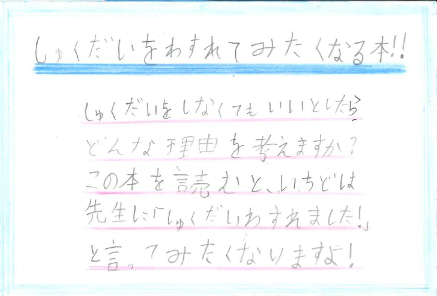 しゅくだいをわすれてみたくなる本!!
しゅくだいをしなくてもいいとしたら
どんな理由を考えますか?
この本を読むと、いちどは
先生に「しゅくだいわすれました!」
と言ってみたくなりますよ!